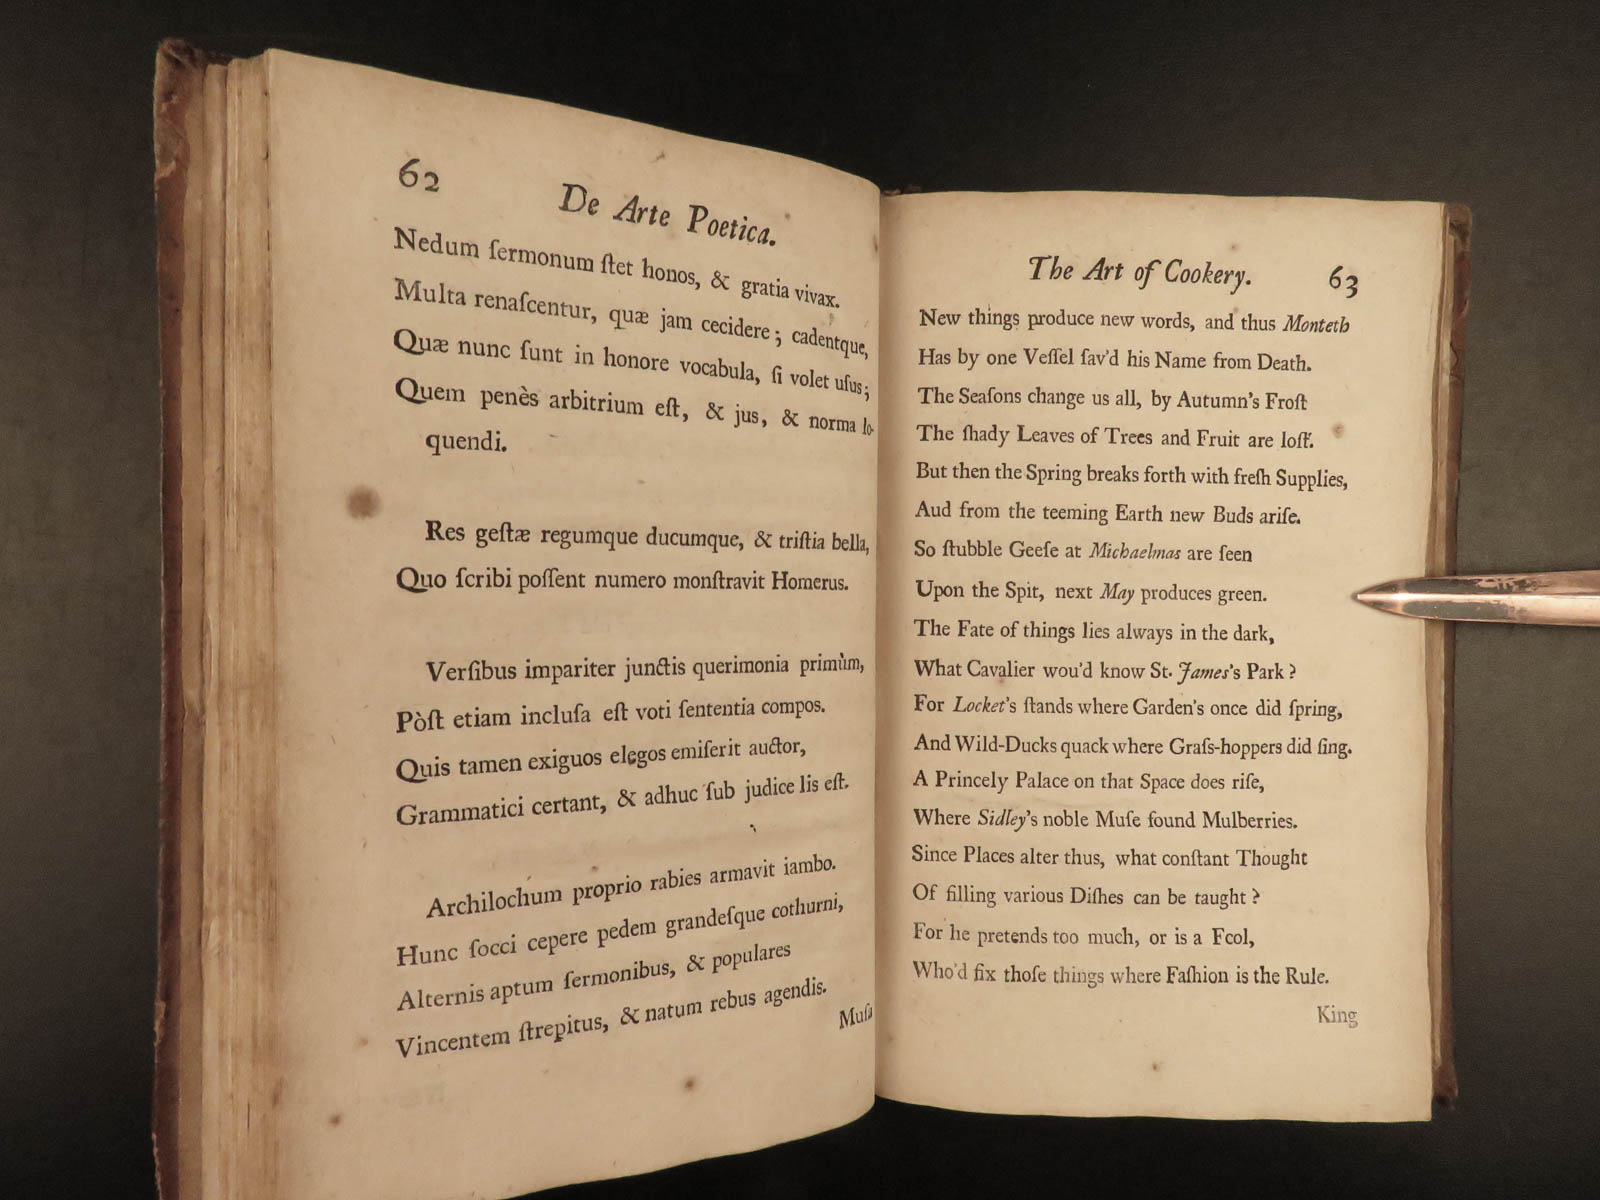 62
De Arte Poetica.
Nedum ſermonum ſtet honos, & gratia vivax.
Multa renaſcentur, quæ jam cecidere; cadentque,
Quæ nunc ſunt in honore vocabula, ſi volet uſus;
Quem penès arbitrium eſt, & jus, & norma lo-
quendi.
Res geſtæ regumque ducumque, & triſtia bella,
Quo ſcribi poſſent numero monſtravit Homerus.
Verſibus impariter junctis querimonia primùm,
Pòſt etiam incluſa eſt voti ſententia compos.
Quis tamen exiguos elegos emiſerit auctor,
Grammatici certant, & adhuc ſub judice lis eſt.
Archilochum proprio rabies armavit iambo.
Hunc ſocci cepere pedem grandeſque cothurni,
Alternis aptum ſermonibus, & populares
Vincentem ſtrepitus, & natum rebus agendis.
Muſa
The Art of Cookery.
63
New things produce new words, and thus Monteth
Has by one Veſſel ſav'd his Name from Death.
The Seaſons change us all, by Autumn's Froſt
The ſhady Leaves of Trees and Fruit are loſt.
But then the Spring breaks forth with freſh Supplies,
Aud from the teeming Earth new Buds ariſe.
So ſtubble Geeſe at Michaelmas are ſeen
Upon the Spit, next May produces green.
The Fate of things lies always in the dark,
What Cavalier wou'd know St. James's Park?
For Locket's ſtands where Garden's once did ſpring,
And Wild-Ducks quack where Graſs-hoppers did ſing.
A Princely Palace on that Space does riſe,
Where Sidley's noble Muſe found Mulberries.
Since Places alter thus, what conſtant Thought
Of filling various Diſhes can be taught?
For he pretends too much, or is a Fool,
Who'd fix thoſe things where Faſhion is the Rule.
King